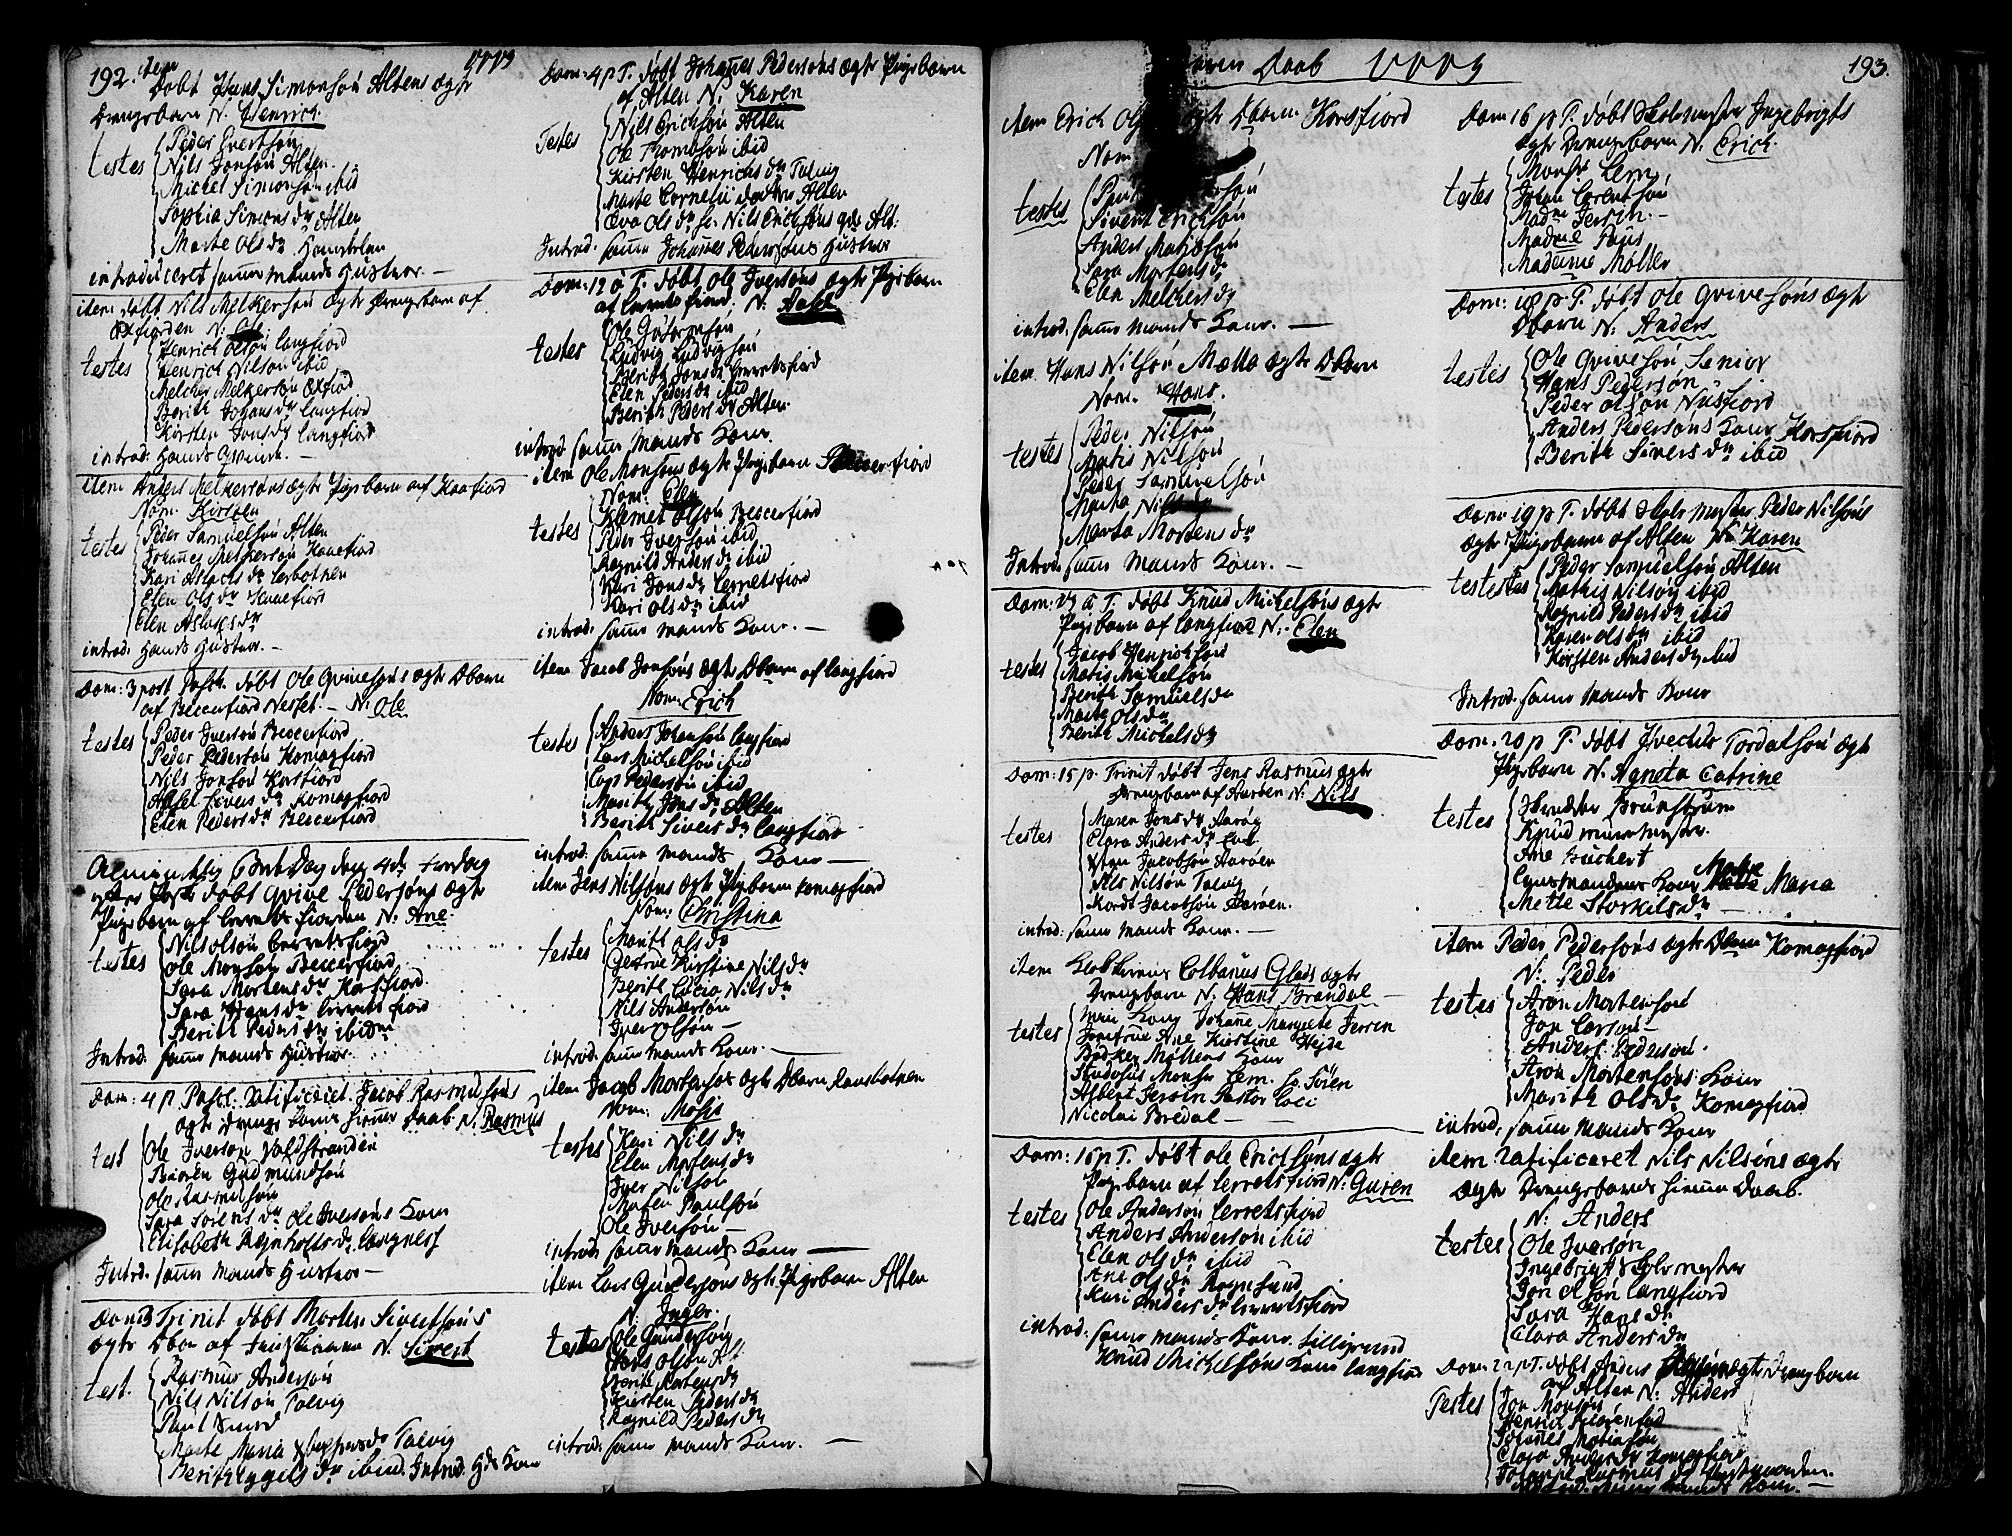 192. item 1773
Døbt Hans Simonsøn Altens ægte
Drengebarn N. Henrich.
testes Peder Evertsøn
Nils Jonsøn Alten.
Michel Simonsøn ibid
Sophia Simonsdr Alten
Marte Olsdr
introduceret samme mands Hustrue. —
item døbt Nils Melkersøn ægte drengebarn af
Oxfiorden N. Ole
testes Henrich Olsøn langfiord
Henrich Nilson ibid
Melcher Melkersøn Oxfiord
Berith Johansdr langfiord
Kirsten Jonsdr langfiord
introd: Hands Qvinde. —
item Anders Melkersøns ægte Pigebarn af Kaafiord
Nom. Kirsten
testes Peder Samuelsøn Alten
Johannes Melkersøn Kaaefiord
Kari Aslachsdr Lerbotnen
Elen Olsdr Kaaefiord
Elen Aslaksdr
introd: Hands Hustrue. —
Dom: 3 post Pasch. døbt Ole Qvivesøns ægte Dbarn
af Beccerfiord Nesset. — N. Ole
testes Peder Iversøn Beccerfiord
Peder Pedersøn Komagfiord
Nils Jonsøn Korsfiord
Axsel Siversdr Komagfiord
Elen Pedersdr Beccerfiord
Almindelig Bede Dag den 4de fredag
efter Paske døbt Qvive Pedersøns ægte
Pigebarn af Lerretsfiorden N. Ane.
testes Nils Olsøn Lerretsfiord
Ole Monsøn Beccerfiord
Sara Mortensdr Korsfiord
Sara Hansdr Lerretsfiord
Berith Pedersdr ibidm
Introd. samme mands Hustrue.
Dom: 4 p. Pasc. ratificeret Jacob Rasmussøns
ægte drenge barns hiemme daab N. Rasmus
test Ole Iversøn Valdstranden
Biørn Gudmundsøn
Ole Rasmusøn
Sara Sørensdr Ole Iversøns Kone
Elisabeth Reynholtsdr Langnes
Introd. samme mands Hustrue —
Dom 3 Trinit døbt Morten Sivertsøns
ægte Dbar af N. Sivert
test. Rasmus Andersøn
Nils Nilsøn Talvig
Paul Knud
Marte Maria Talvig
Berith ibid. Introd. Kone
Dom: 4 p T. døbt Johannes Pedersøns ægte Pigebarn
af Alten N. Karen
Testes Nils Erichsøn Alten
Ole Tromsøn ibid
Kirsten Henrichsdr Talvig
Marte Cornelii datter Alten
Eva Olsdr Nils Erichsøns Alt:
Introd. samme Johannes Pedersøns Hustrue
Dom: 12 à T. døbt Ole Iversøns ægte Pigebarn
af Lerretsfiord. N. Axsel
testes Ole Guttormsøn
Ludvig Ludvigsøn
Berith Jonsdr Lerretsfiord
Elen Pedersdr ibid
Berith Pedersdr Alten.
introd samme Mands Kone
item Ole Monsøns ægte Pigebarn Beccerfiord
Nom: Elen
testes Klemet Olsøn Beccerfiord
Peder Iversøn ibid
Ragnild Andersdr ibid
Kari Jonsdr Lerretsfiord
Kari Olsdr ibid
introd: samme mands Kone. —
item Jacob Jonsøns ægte Dbarn af langfiord
Nom. Erich
testes Anders Johansøn langfiord
Lars Michelsøn ibid
Lars Pedersøn ibid
Marith Jonsdr Alten
Berith Siversdr langfiord
introd: samme mands Kone —
item Jens Nilsøns ægte Pigebarn komagfiord
Nom: Christina
testes Marith Olsdr
Giertrue Kirstine Nilsdr
Berith Lucia Nilsdr
Nils Andersøn
Iver Olsøn —
introd. samme mands Kone.
item Jacob Mortensøns ægte Dbarn Rafsbotnen
Nom: Mosis
testes Kari Nilsdr
Elen Mortensdr
Iver Nilsøn
Morten Paulsøn
Ole Iversøn —
introd. samme mands Kone —
item Lars Gundersøns ægte Pigebarn Alten
N. Inger.
testes Ole Gundersøn
Hans Olsøn Alt.
Berith Mortensdr
Kirsten Pedersdr
Ragnild Pedersdr
introd. samme mands Kone. —
Børns Daab 1773 193.
item Erich Ols ægte Dbarn Korsfiord
Nom
testes
Sivert Erichsøn
Anders Matissøn
Sara Mortensdr
Elen Melchersdr
introd. samme mands Kone. —
item Hans Nilsøn Mælla ægte Dbarn
Nom. Hans.
testes Peder Nilsøn
Matis Nilsøn
Peder Samuelsøn
Marta Nils
Marta Mortensdr
Introd. samme Mands Kone. —
Dom: à T. døbt Knud Mickelsøns ægte
Pigebarn af langfiord N. Elen
testes Jacob Henrichsøn
Matis Mickelsøn
Berith Samuelsdr
Marte Olsdr
Berith Mickelsdr
Dom: 15 p. Trinit døbt Jens Rasmus ægte
Drengebarn af Aarøen N. Nils
testes Maren Jonsdr Aarøe
Clara Andersdr
Jacobsøn Aarøen
Nils Nilsøn Talvig
Kordt Jacobsøn Aarøen.
introd. samme mands Kone. —
item Colbanus Glads ægte
Drengebarn N. Hans Brandal
testes Johanne Margrete Jersin
Jomfrue Ane Kirstine Hejde
Møllers kone
Studosus Monsr Lem.
Albert Jersin Pastor Loci
Nicolai Bredal —
Dom: 16 p T. døbt Ole Erichsøns ægte
Pigebarn af Lerretsfiord N: Guren
testes Ole Andersøn Lerretsfiord
Anders Andersøn ibid
Elen Olsdr ibid
Ane Olsdr Rognsund
Kari Andersdr Lerretsfiord
introd: samme mands Kone.
Knud Mickelsøns Kone langfiord
Dom 16 p T. døbt Skolemester Ingebrigts
ægte Drengebarn N. Erich.
testes Monsr Lem
Johan Lorentsøn
Madme Jersin. —
Madme Paus
Madme Møller
Dom: 18 p. T. døbt Ole Qvivesøns ægte
Dbarn N: Anders
testes Ole Qvivesøn Senior
Hans Pedersøn
Peder Olsøn Nusfiord
Anders Pedersøns Kone Korsfiord
Berith Siversdr ibid
Dom: 19 p T. døbt Skolemester Peder Nilsøns
ægte Pigebarn af Alten N. Karen
testes Peder Samuelsøn Alten
Mathis Nilsøn ibid
Ragnild Pedersdr ibid
Karen Olsdr ibid
Kirsten Andersdr ibid
Introd. samme mands Kone
Dom. 20 p T. døbt Tordalsøn ægte
Pigebarn N. Agneta Catrine
testes Brunstrum
Knud
Ane Buchert
Lensmandens Kone Maria
Mette Storkilsdr
item Peder Pedersøns ægte Dbarn Komagfiord
N. Peder
testes Aron Mortensøn
Jon Larsøn —
Anders Pedersøn.
Aron Mortensøns Kone
Marith Olsdr Komagfiord
introd. samme Mands Kone
item ratificeret Nils Nilsøns ægte
ægte Drengebarns hiemme Daab.
N: Anders
testes Ole Iversøn
Ingebrigt Skolemester
Jon Olsøn langfiord
Sara Hansdr
Clara Andersdr
Dom 22 p T. døbt Anders ægte Drengbarn
af Alten N: Anders
Testes Jon Monsøn
Henrich
Johannes
Clara Andersdr Komagfiord
Rasmus
samme mands Kone. —